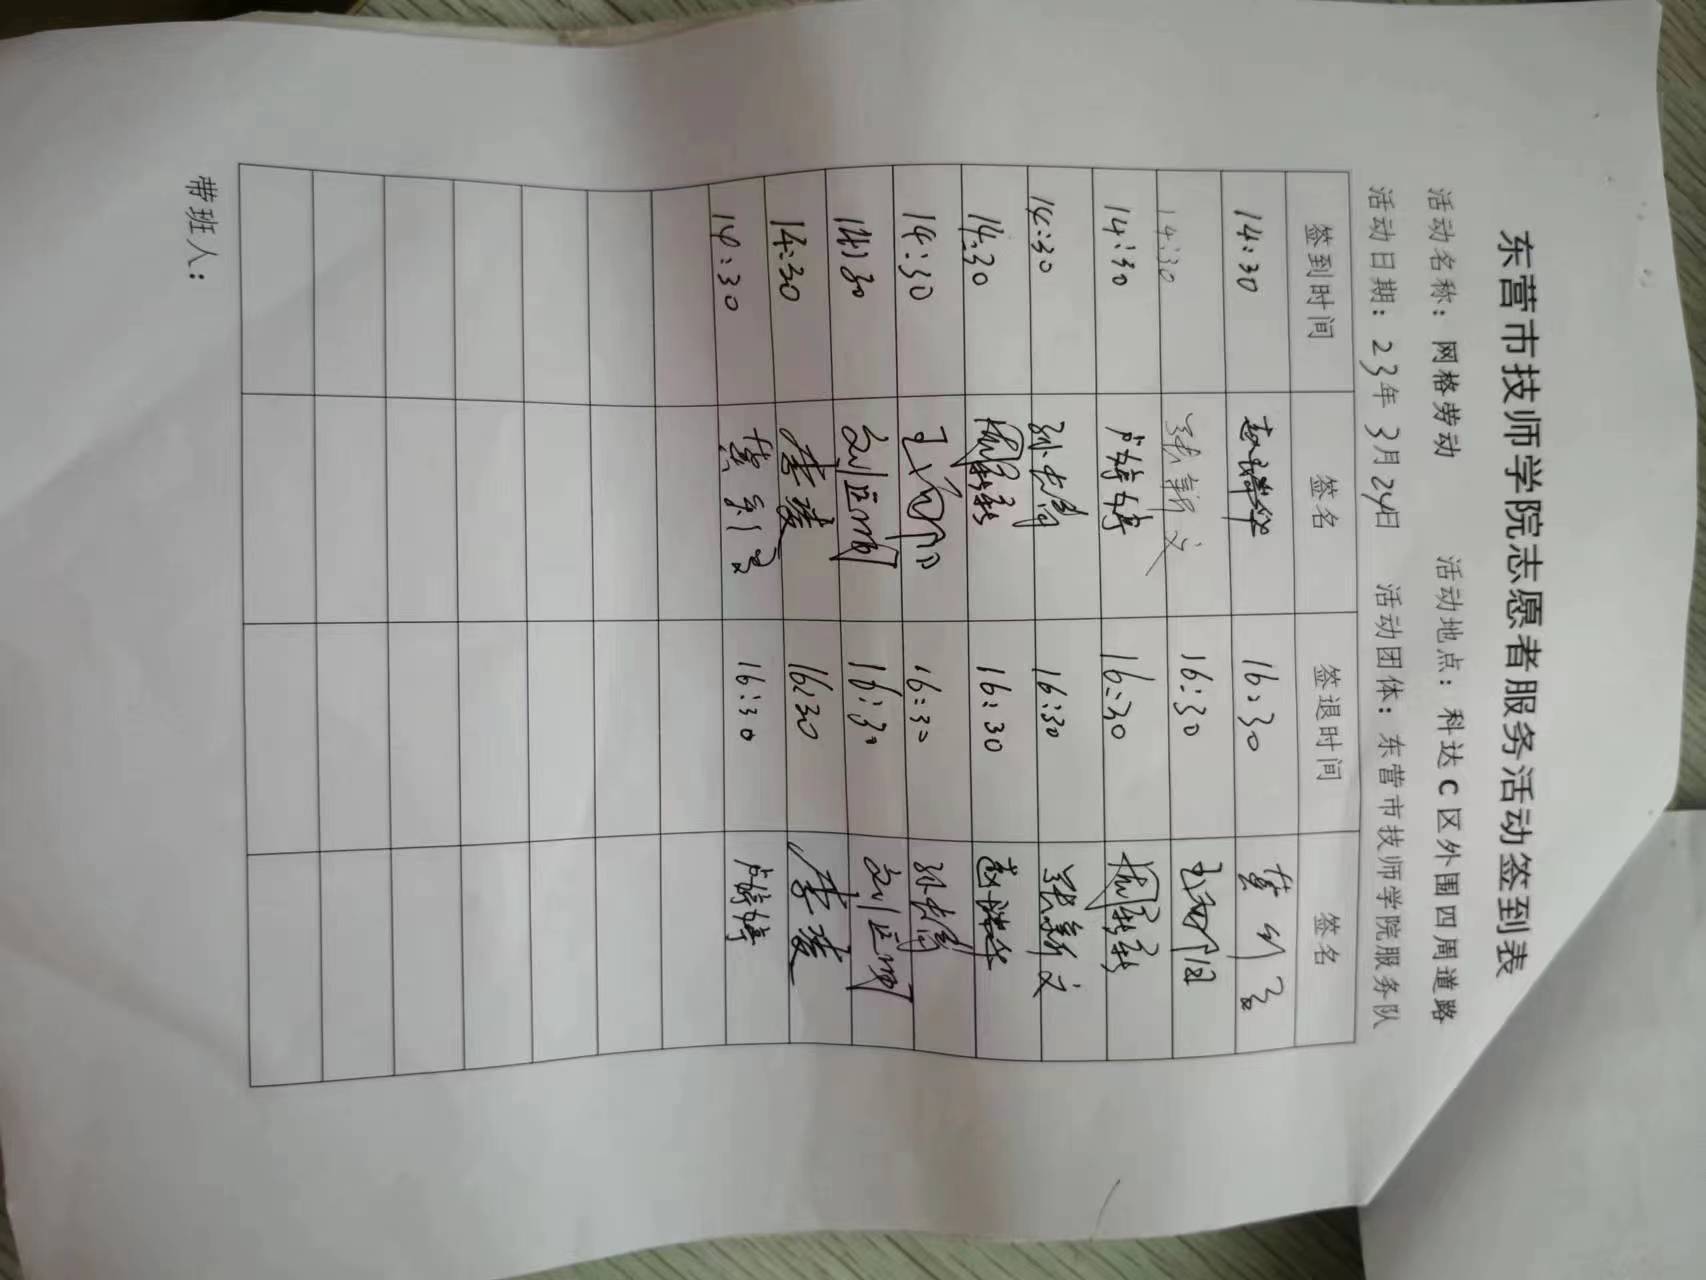 东营市技师学院志愿者服务活动签到表
活动名称：网格劳动 活动地点：科达C区外围四周道路
活动日期：23年3月24日 活动团体：东营市技师学院服务队
签到时间 签名 签退时间 签名
14:30 16:30
14:30 张新义 16:30
14:30 卢婷婷 16:30
14:30 16:30 张新义
14:30 16:30
14:30 16:30
14:30 刘匠 16:30 刘匠
14:30 李凌 16:30 李凌
14:30 16:30 卢婷婷
带班人：